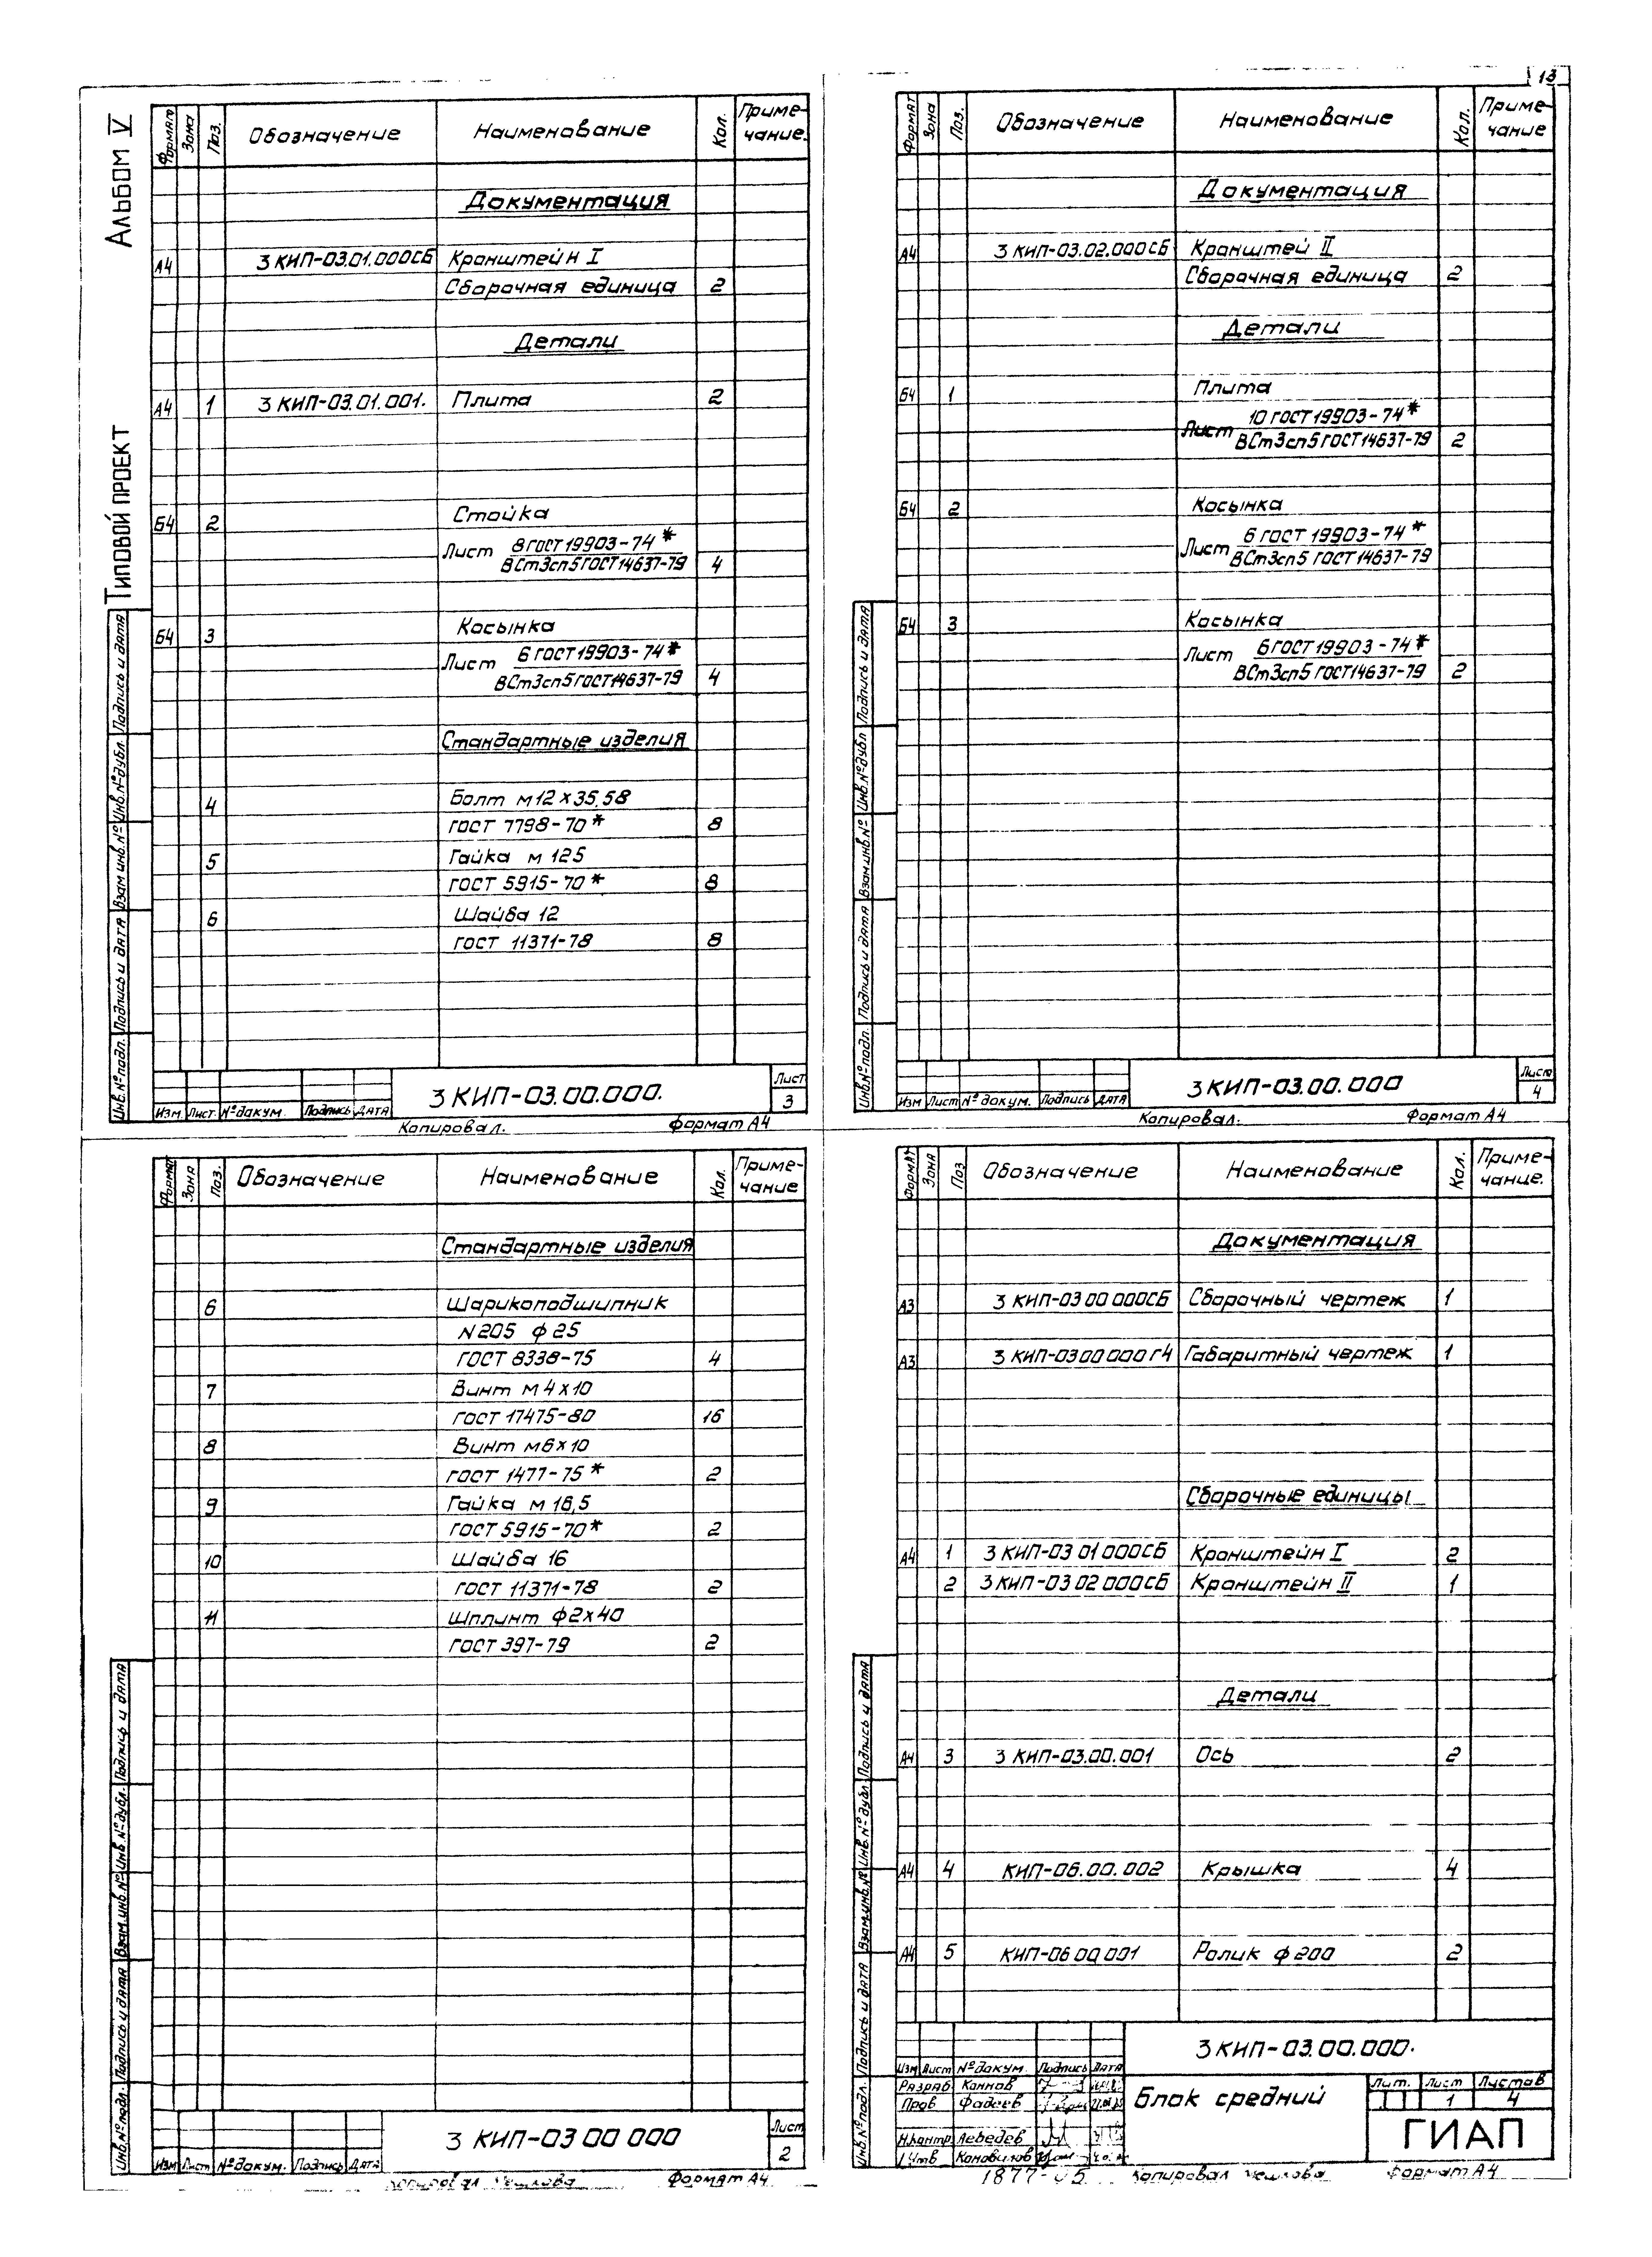 13
Альбом V
Типовой проект
Формат Зона Поз. Обозначение Наименование Кол. Примечание.
Документация
А4 3 КИП-03.01.000СБ Кронштейн I
Сборочная единица 2
Детали
А4 1 3 КИП-03.01.001. Плита 2
Б4 2 Стойка
Лист 8 ГОСТ 19903-74*
ВСт3сп5 ГОСТ 14637-79 4
Б4 3 Косынка
Лист 6 ГОСТ 19903-74*
ВСт3сп5 ГОСТ 14637-79 4
Стандартные изделия
4 Болт м12×35.58
ГОСТ 7798-70* 8
5 Гайка м 12 5
ГОСТ 5915-70* 8
6 Шайба 12
ГОСТ 11371-78 8
Инв.№ подл. Подпись и дата Взам инв.№ Инв.№ дубл. Подпись и дата
Изм Лист. № докум. Подпись Дата
3 КИП-03.00.000.
Лист
3
Копировал. Формат А4
Формат Зона Поз. Обозначение Наименование Кол. Примечание
Документация
А4 3 КИП-03.02.000СБ Кронштей II
Сборочная единица 2
Детали
Б4 1 Плита
Лист 10 ГОСТ 19903-74*
ВСт3сп5 ГОСТ 14637-79 2
Б4 2 Косынка
Лист 6 ГОСТ 19903-74*
ВСт3сп5 ГОСТ 14637-79
Б4 3 Косынка
Лист 6 ГОСТ 19903-74*
ВСт3сп5 ГОСТ 14637-79 2
Инв.№ подл. Подпись и дата Взам.инв.№ Инв.№ дубл Подпись и дата
Изм Лист № докум. Подпись Дата
3 КИП-03.00.000
Лист
4
Копировал. Формат А4
Формат Зона Поз. Обозначение Наименование Кол. Примечание
Стандартные изделия
6 Шарикоподшипник
N205 ф 25
ГОСТ 8338-75 4
7 Винт м 4×10
ГОСТ 17475-80 16
8 Винт м6×10
ГОСТ 1477-75* 2
9 Гайка м 16,5
ГОСТ 5915-70* 2
10 Шайба 16
ГОСТ 11371-78 2
11 Шплинт ф2×40
ГОСТ 397-79 2
Инв.№ подл. Подпись и дата Взам.инв.№ Инв.№ дубл. Подпись и дата
Изм Лист № докум. Подпись Дата
3 КИП-03 00 000
Лист
2
Формат А4
Формат Зона Поз Обозначение Наименование Кол. Примечание.
Документация
А3 3 КИП-03 00 000СБ Сборочный чертеж 1
А3 3 КИП-03 00 000 ГЧ Габаритный чертеж 1
Сборочные единицы
А4 1 3 КИП-03 01 000СБ Кронштейн I 2
2 3 КИП-03 02 000СБ Кронштейн II 1
Детали
А4 3 3 КИП-03.00.001 Ось 2
А4 4 КИП-06.00.002 Крышка 4
А4 5 КИП-06 00 001 Ролик ф 200 2
Инв.№ подл. Подпись и дата Взам.инв.№ Инв.№ дубл Подпись и дата
3 КИП-03.00.000.
Изм Лист № докум. Подпись Дата
Разраб Каннов
Пров Фадеев
Н.контр Лебедев
Утв
Блок средний
Лит. Лист Листов
1 4
ГИАП
1877-05 Копировал Формат А4